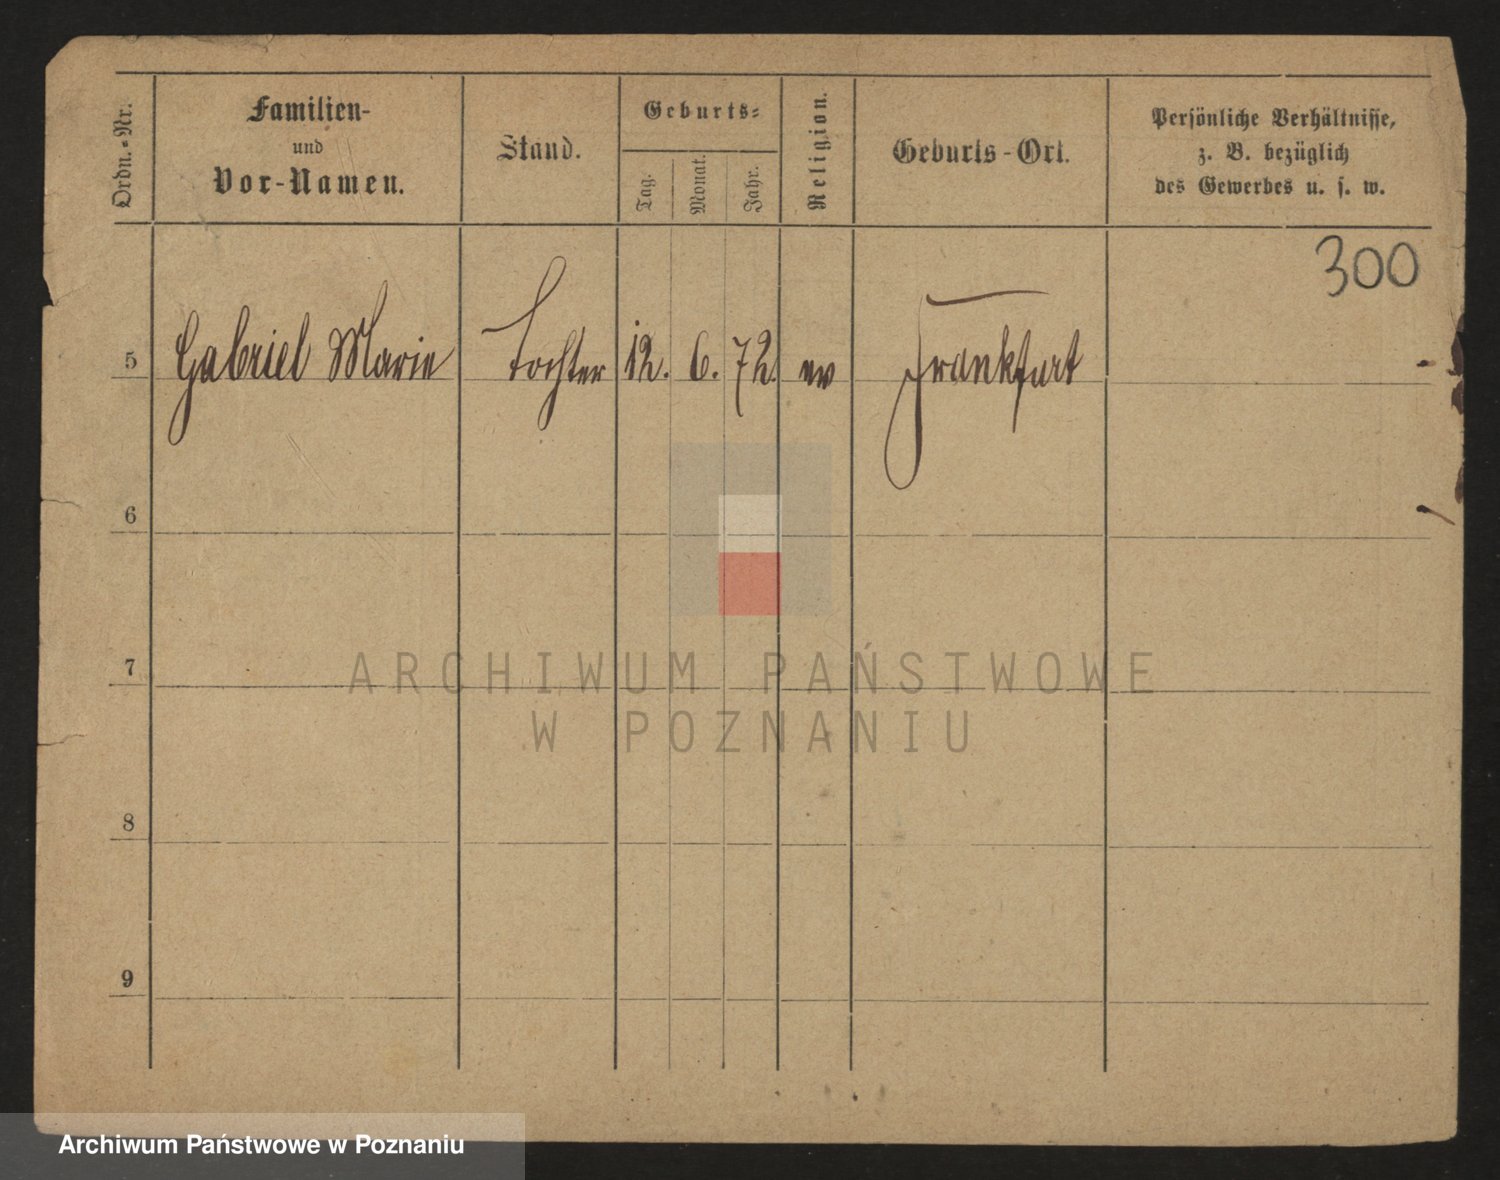 Ordn.-Nr.
Familien-
und
Vor-Namen.
Stand.
Geburts-
Tag.
Monat.
Jahr.
Religion.
Geburts-Ort.
Persönliche Verhältnisse,
z. B. bezüglich
des Gewerbes u. s. w.
300
5 Gabriel Marie Tochter 12. 6. 72. ev Frankfurt
6
7
ARCHIWUM PAŃSTWOWE
W POZNANIU
8
9
Archiwum Państwowe w Poznaniu